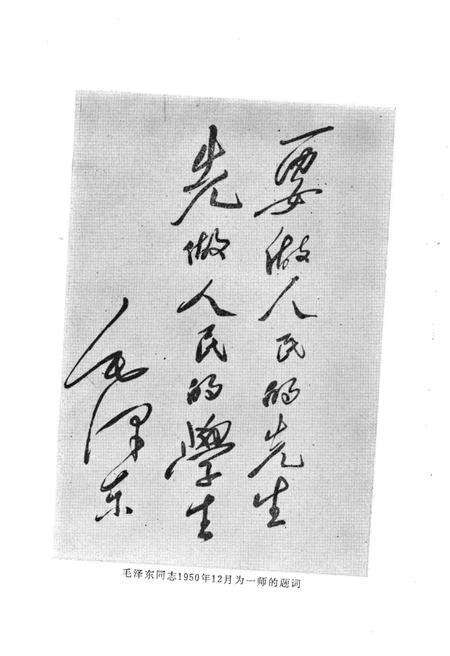 要做人民的先生
先做人民的學生
毛泽东
毛泽东同志1950年12月为一师的题词